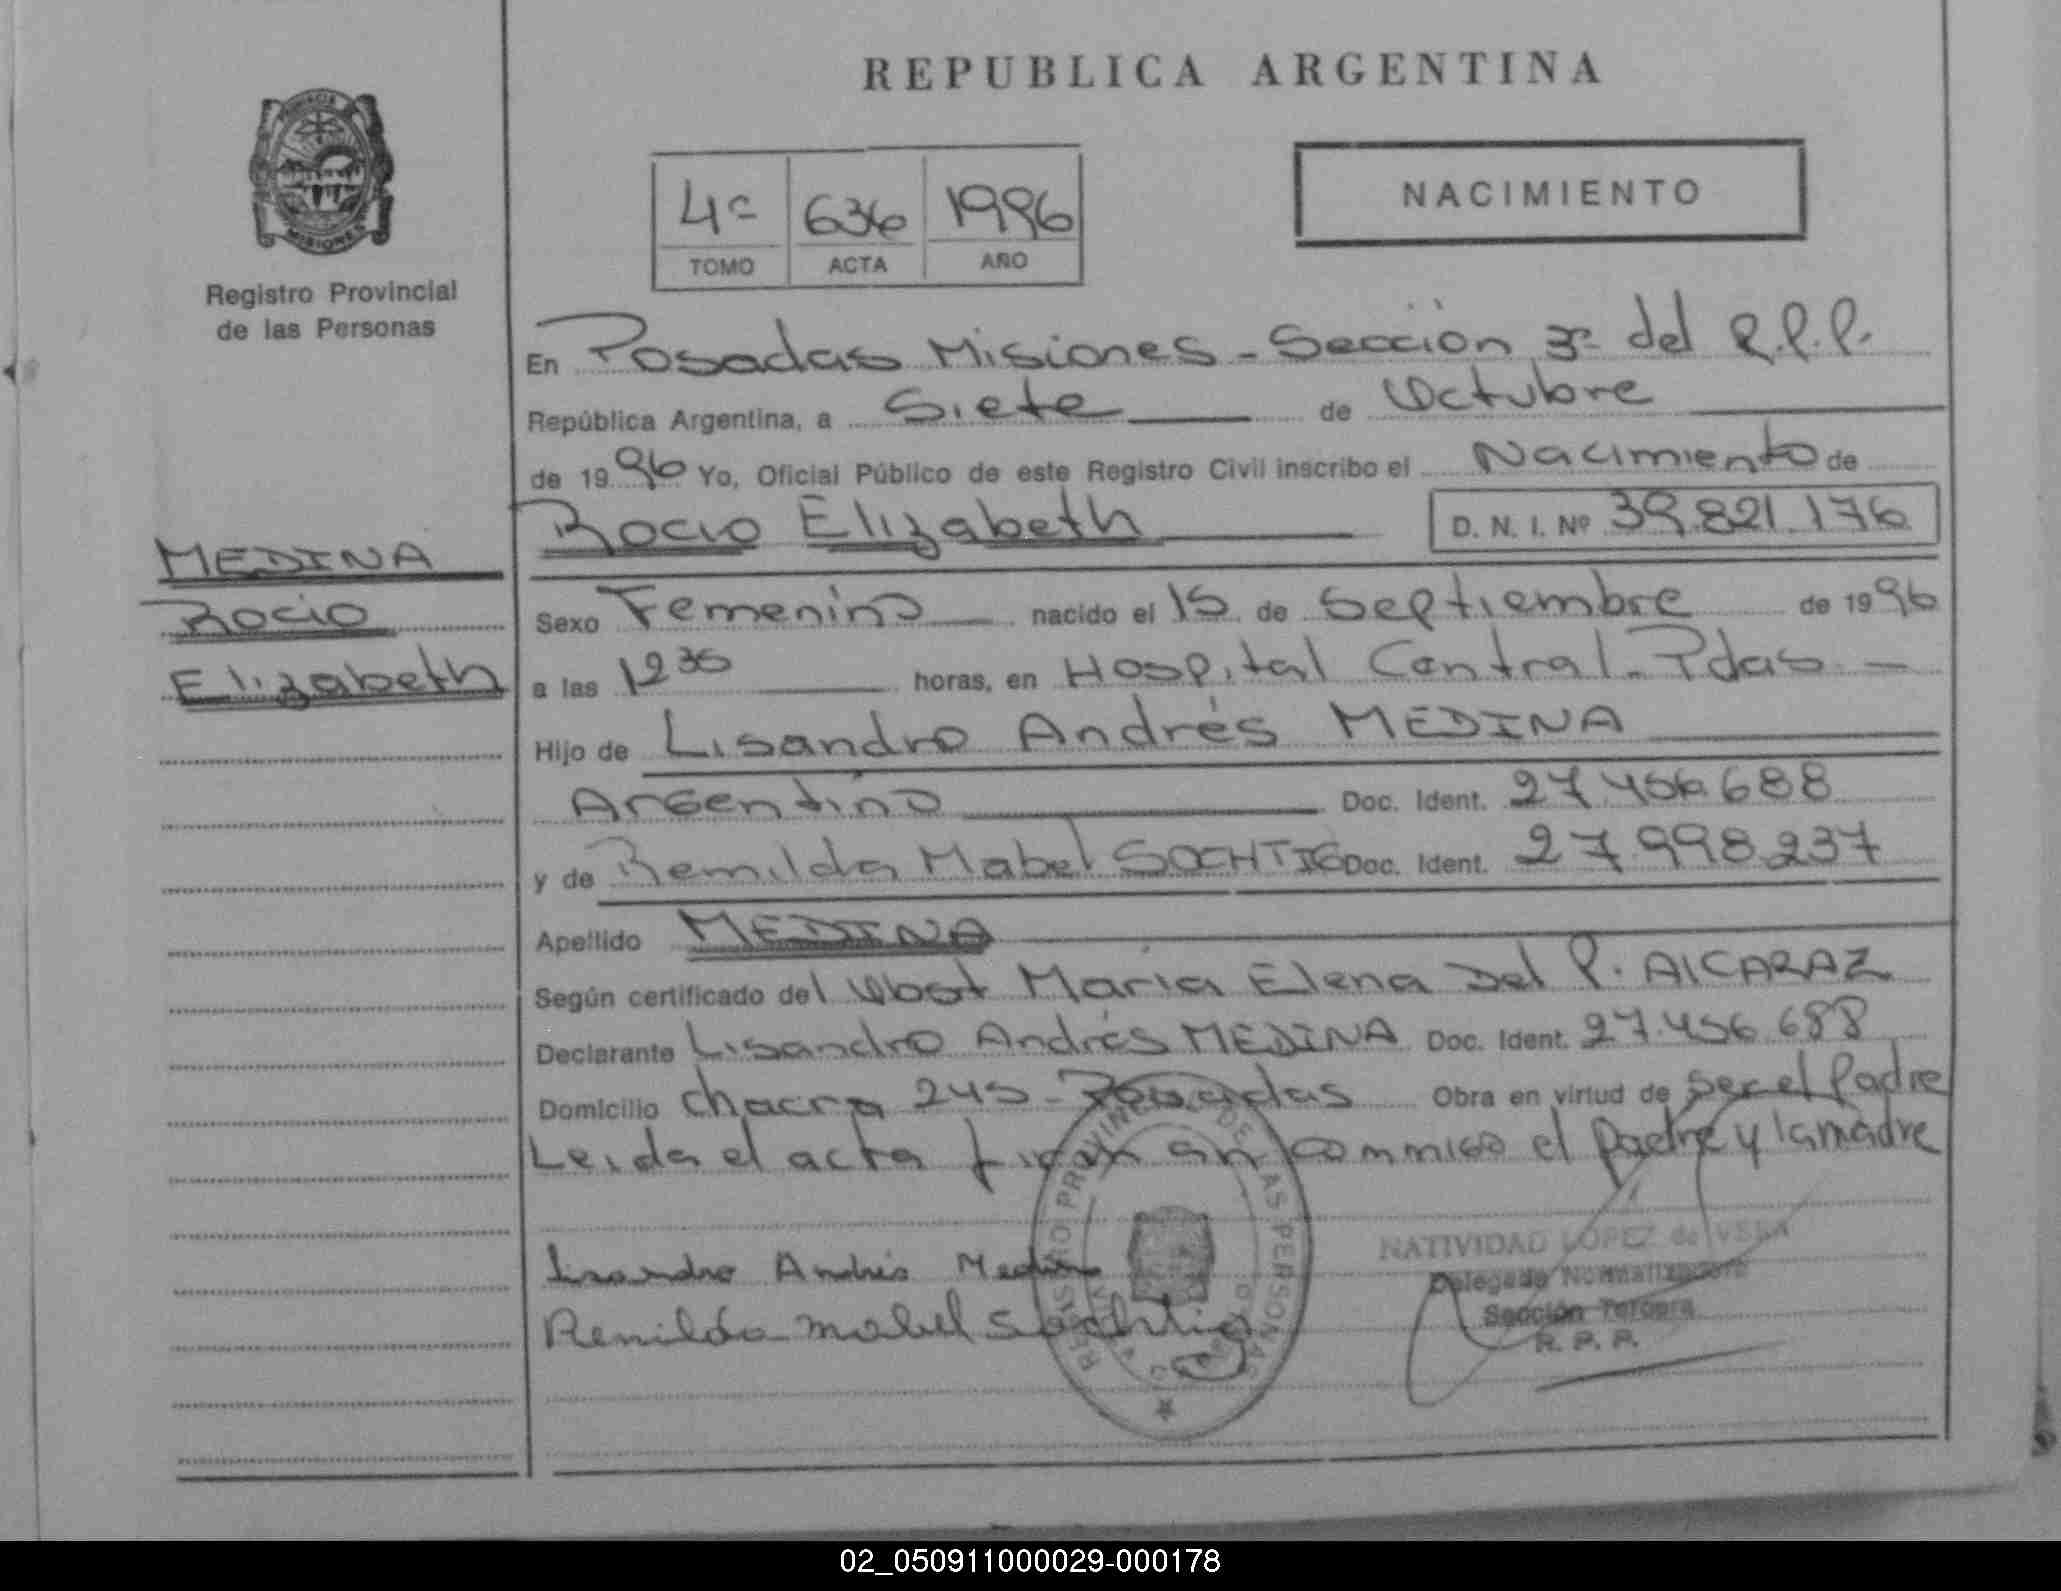 REPUBLICA ARGENTINA
PROVINCIA
MISIONES
Registro Provincial
de las Personas
4º 636 1996
TOMO ACTA AÑO
NACIMIENTO
En Posadas Misiones - Sección 3º del R.P.P.
República Argentina, a Siete de Octubre
de 1996 Yo, Oficial Público de este Registro Civil inscribo el Nacimiento de
Rocio Elizabeth D. N. I. Nº 39.821.176
MEDINA
Rocio
Elizabeth
Sexo Femenino nacido el 15 de Septiembre de 1996
a las 12 35 horas, en Hospital Central - Pdas -
Hijo de Lisandro Andrés MEDINA
Argentino Doc. Ident. 27.456.688
y de Remilda Mabel SOCHTIG Doc. Ident. 27.998.237
Apellido MEDINA
Según certificado del Obst María Elena Del P. AlCARAZ
Declarante Lisandro Andrés MEDINA Doc. Ident. 27.456.688
Domicilio Chacra 245 - Posadas Obra en virtud de Ser el Padre
Leida el acta firman conmigo el Padre y la madre
Lisandro Andrés Medina
Remilda mabel Sochtig
REGISTRO PROVINCIAL DE LAS PERSONAS
NATIVIDAD LOPEZ de VERA
Delegada Normalizadora
Sección Tercera
R. P. P.
02_050911000029-000178